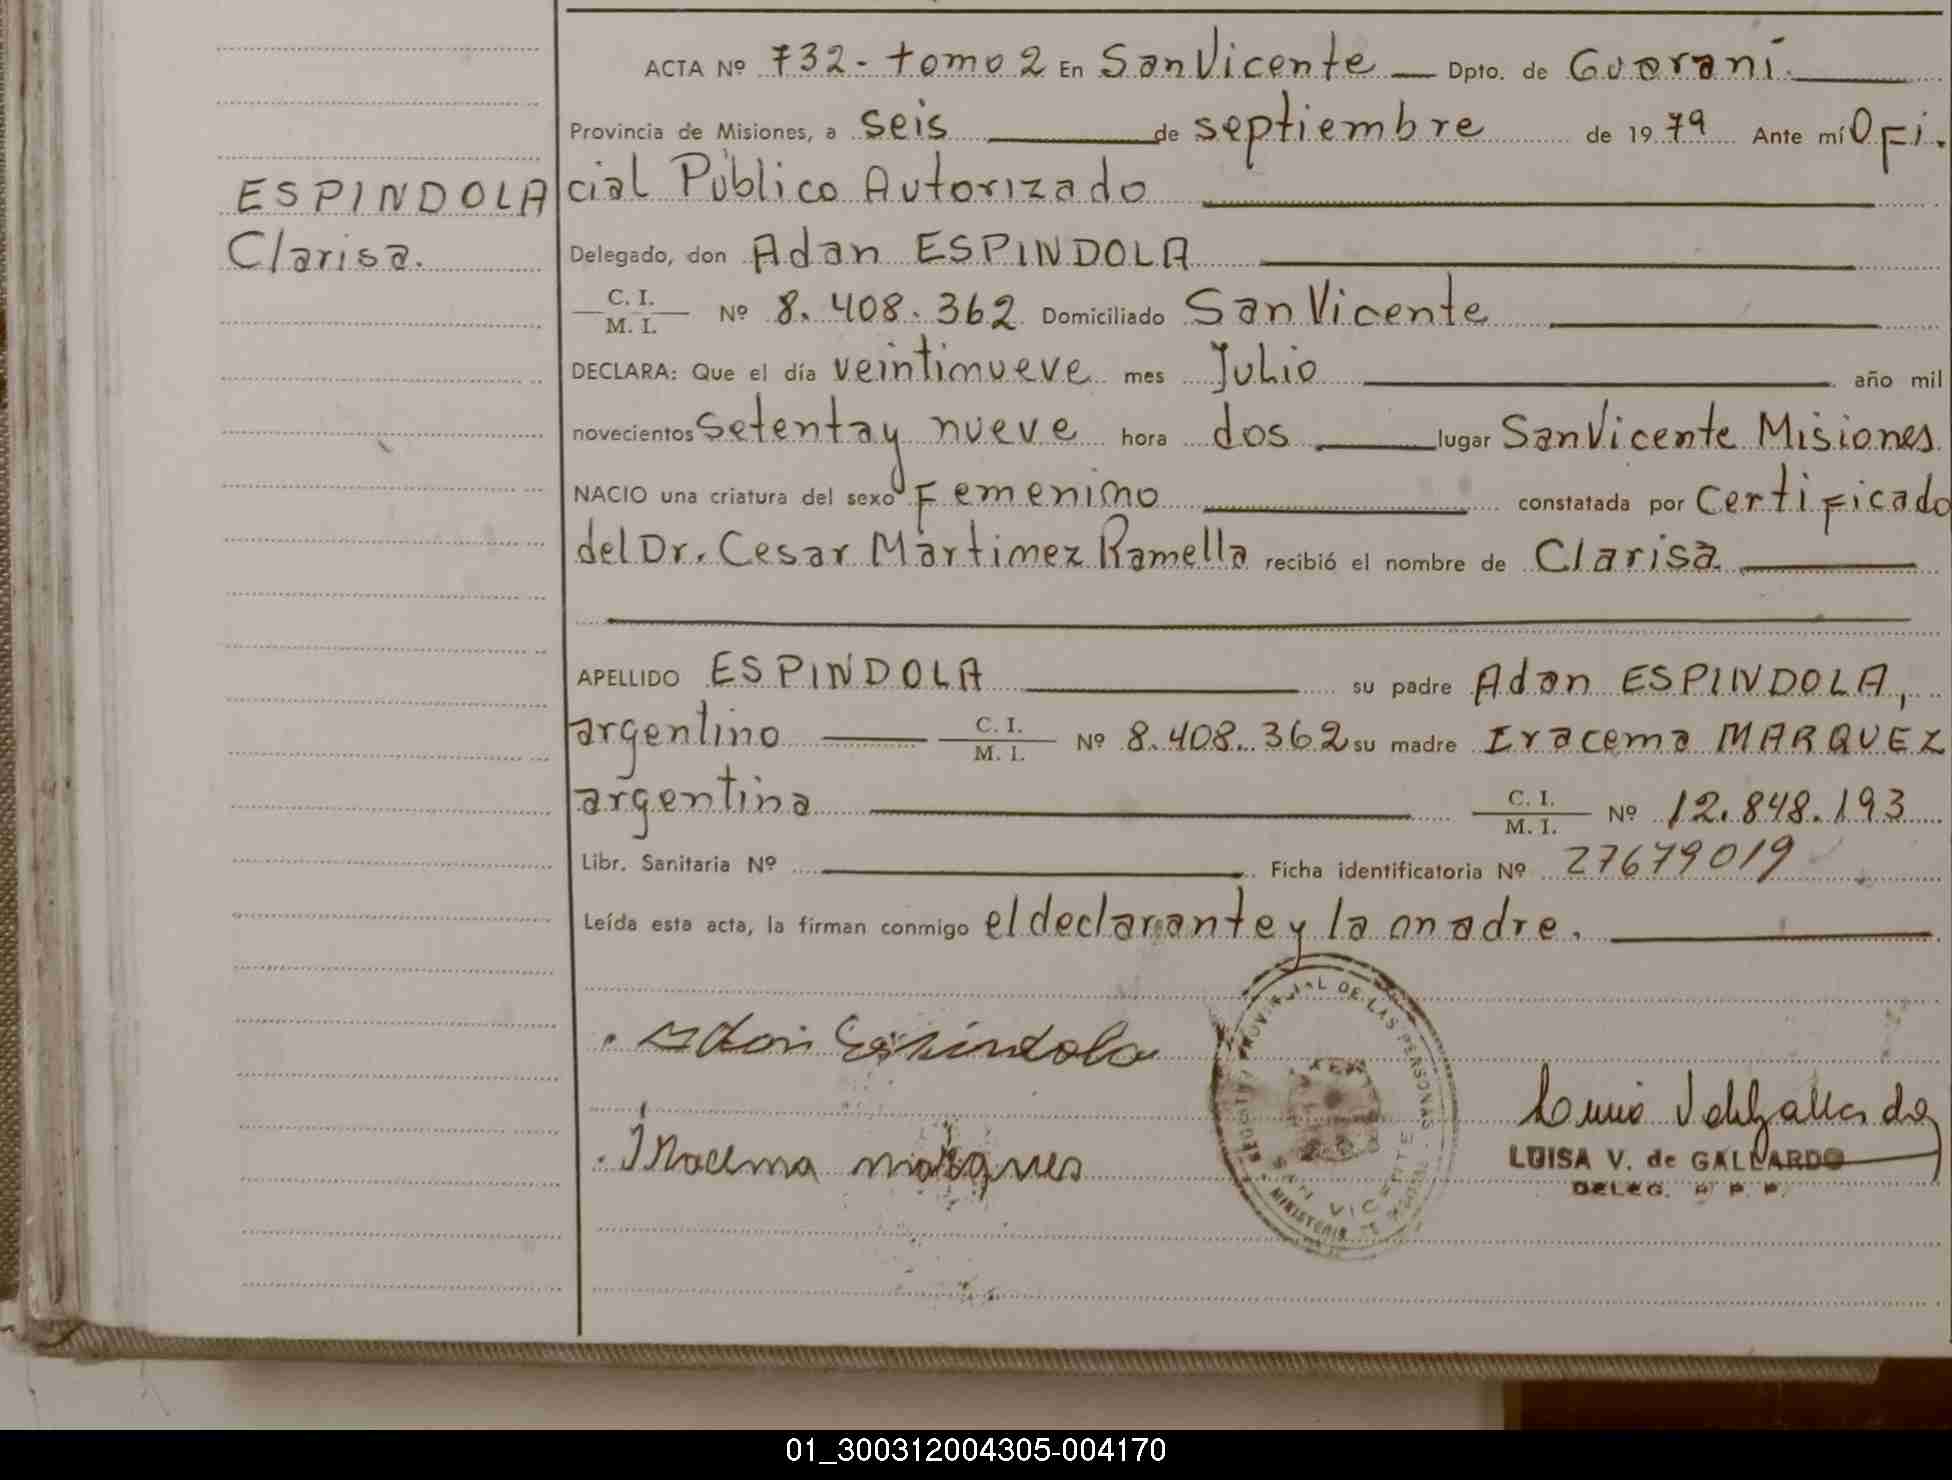 ACTA Nº 732 - tomo 2 En San Vicente — Dpto. de Guaraní
Provincia de Misiones, a seis de septiembre de 1979 Ante mí Ofi.
cial Público Autorizado
ESPINDOLA
Clarisa.
Delegado, don Adan ESPINDOLA
C. I.
M. I. Nº 8.408.362 Domiciliado San Vicente
DECLARA: Que el día veintinueve mes Julio año mil
novecientos Setenta y nueve hora dos lugar San Vicente Misiones
NACIO una criatura del sexo Femenino constatada por Certificado
del Dr. Cesar Martinez Ramella recibió el nombre de Clarisa
APELLIDO ESPINDOLA su padre Adan ESPINDOLA,
argentino C. I. M. I. Nº 8.408.362 su madre Iracema MARQUEZ
argentina C. I. M. I. Nº 12.848.193
Libr. Sanitaria Nº Ficha identificatoria Nº 27679019
Leída esta acta, la firman conmigo el declarante y la madre.
Adan Espindola
Iracema marques
REGISTRO PROVINCIAL DE LAS PERSONAS
SAN VICENTE
MINISTERIO DE
LUISA V. de GALLARDO
DELEG. R. P. P.
01_300312004305-004170